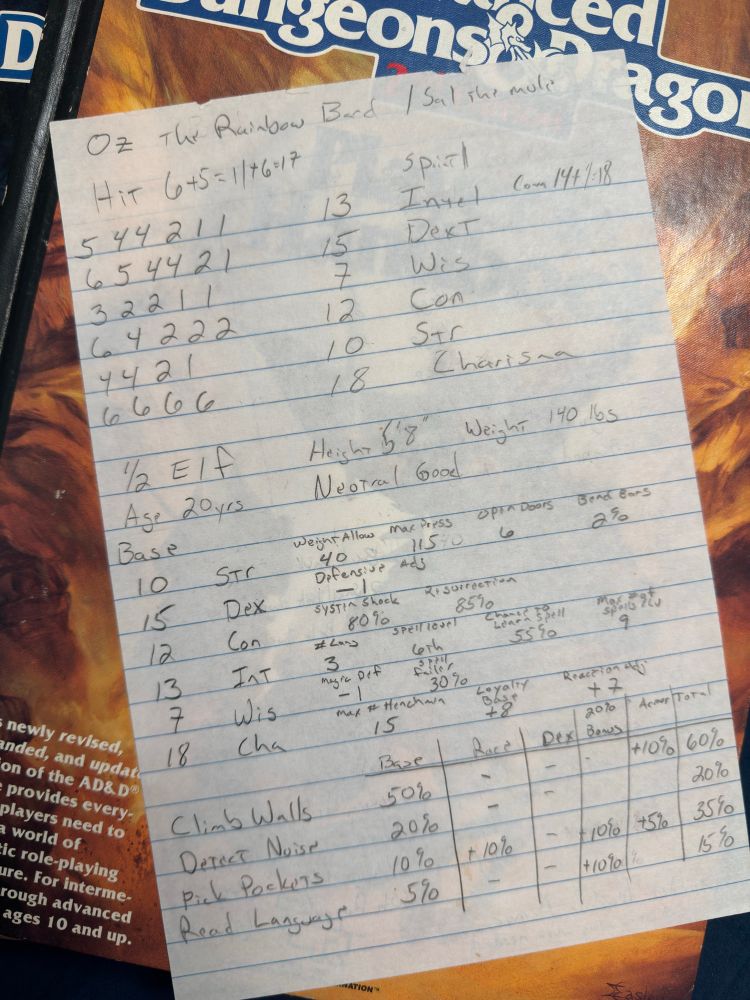 D
Advanced
Dungeons & Dragons
Oz The Rainbow Bard / Sal the mule
Hit 6+5=11/+6=17
Spirtl
5 4 4 2 1 1 13 Intel
6 5 4 4 2 1 15 DexT
3 2 2 1 1 7 Wis
6 4 2 2 2 12 Con
4 4 2 1 10 Str
6 6 6 6 18 Charisma
1/2 Elf Height 5'8" Weight 140 lbs
Age 20yrs Neotral Good
Base
Weight Allow Max Press Open Doors Bend Bars
10 Str 40 115 6 2%
Defensive Adj
15 Dex -1
System Shock Resurrection
12 Con 80% 85%
# Lang Spell level Chance to Learn Spell Max # of Spells/LV
13 Int 3 6th 55% 9
Magic Def Spell Failer
7 Wis -1 30%
Max # Henchmen Loyalty Base Reaction Adj
18 Cha 15 +8 +7
Base Race Dex 20% Bonus Armor Total
Climb Walls 50% - - - +10% 60%
Detect Noise 20% - - 20%
Pick Pockets 10% +10% - +10% +5% 35%
Read Language 5% - - +10% 15%
s newly revised,
anded, and updat
on of the AD&D®
e provides every-
players need to
a world of
tic role-playing
ure. For interme-
rough advanced
ages 10 and up.